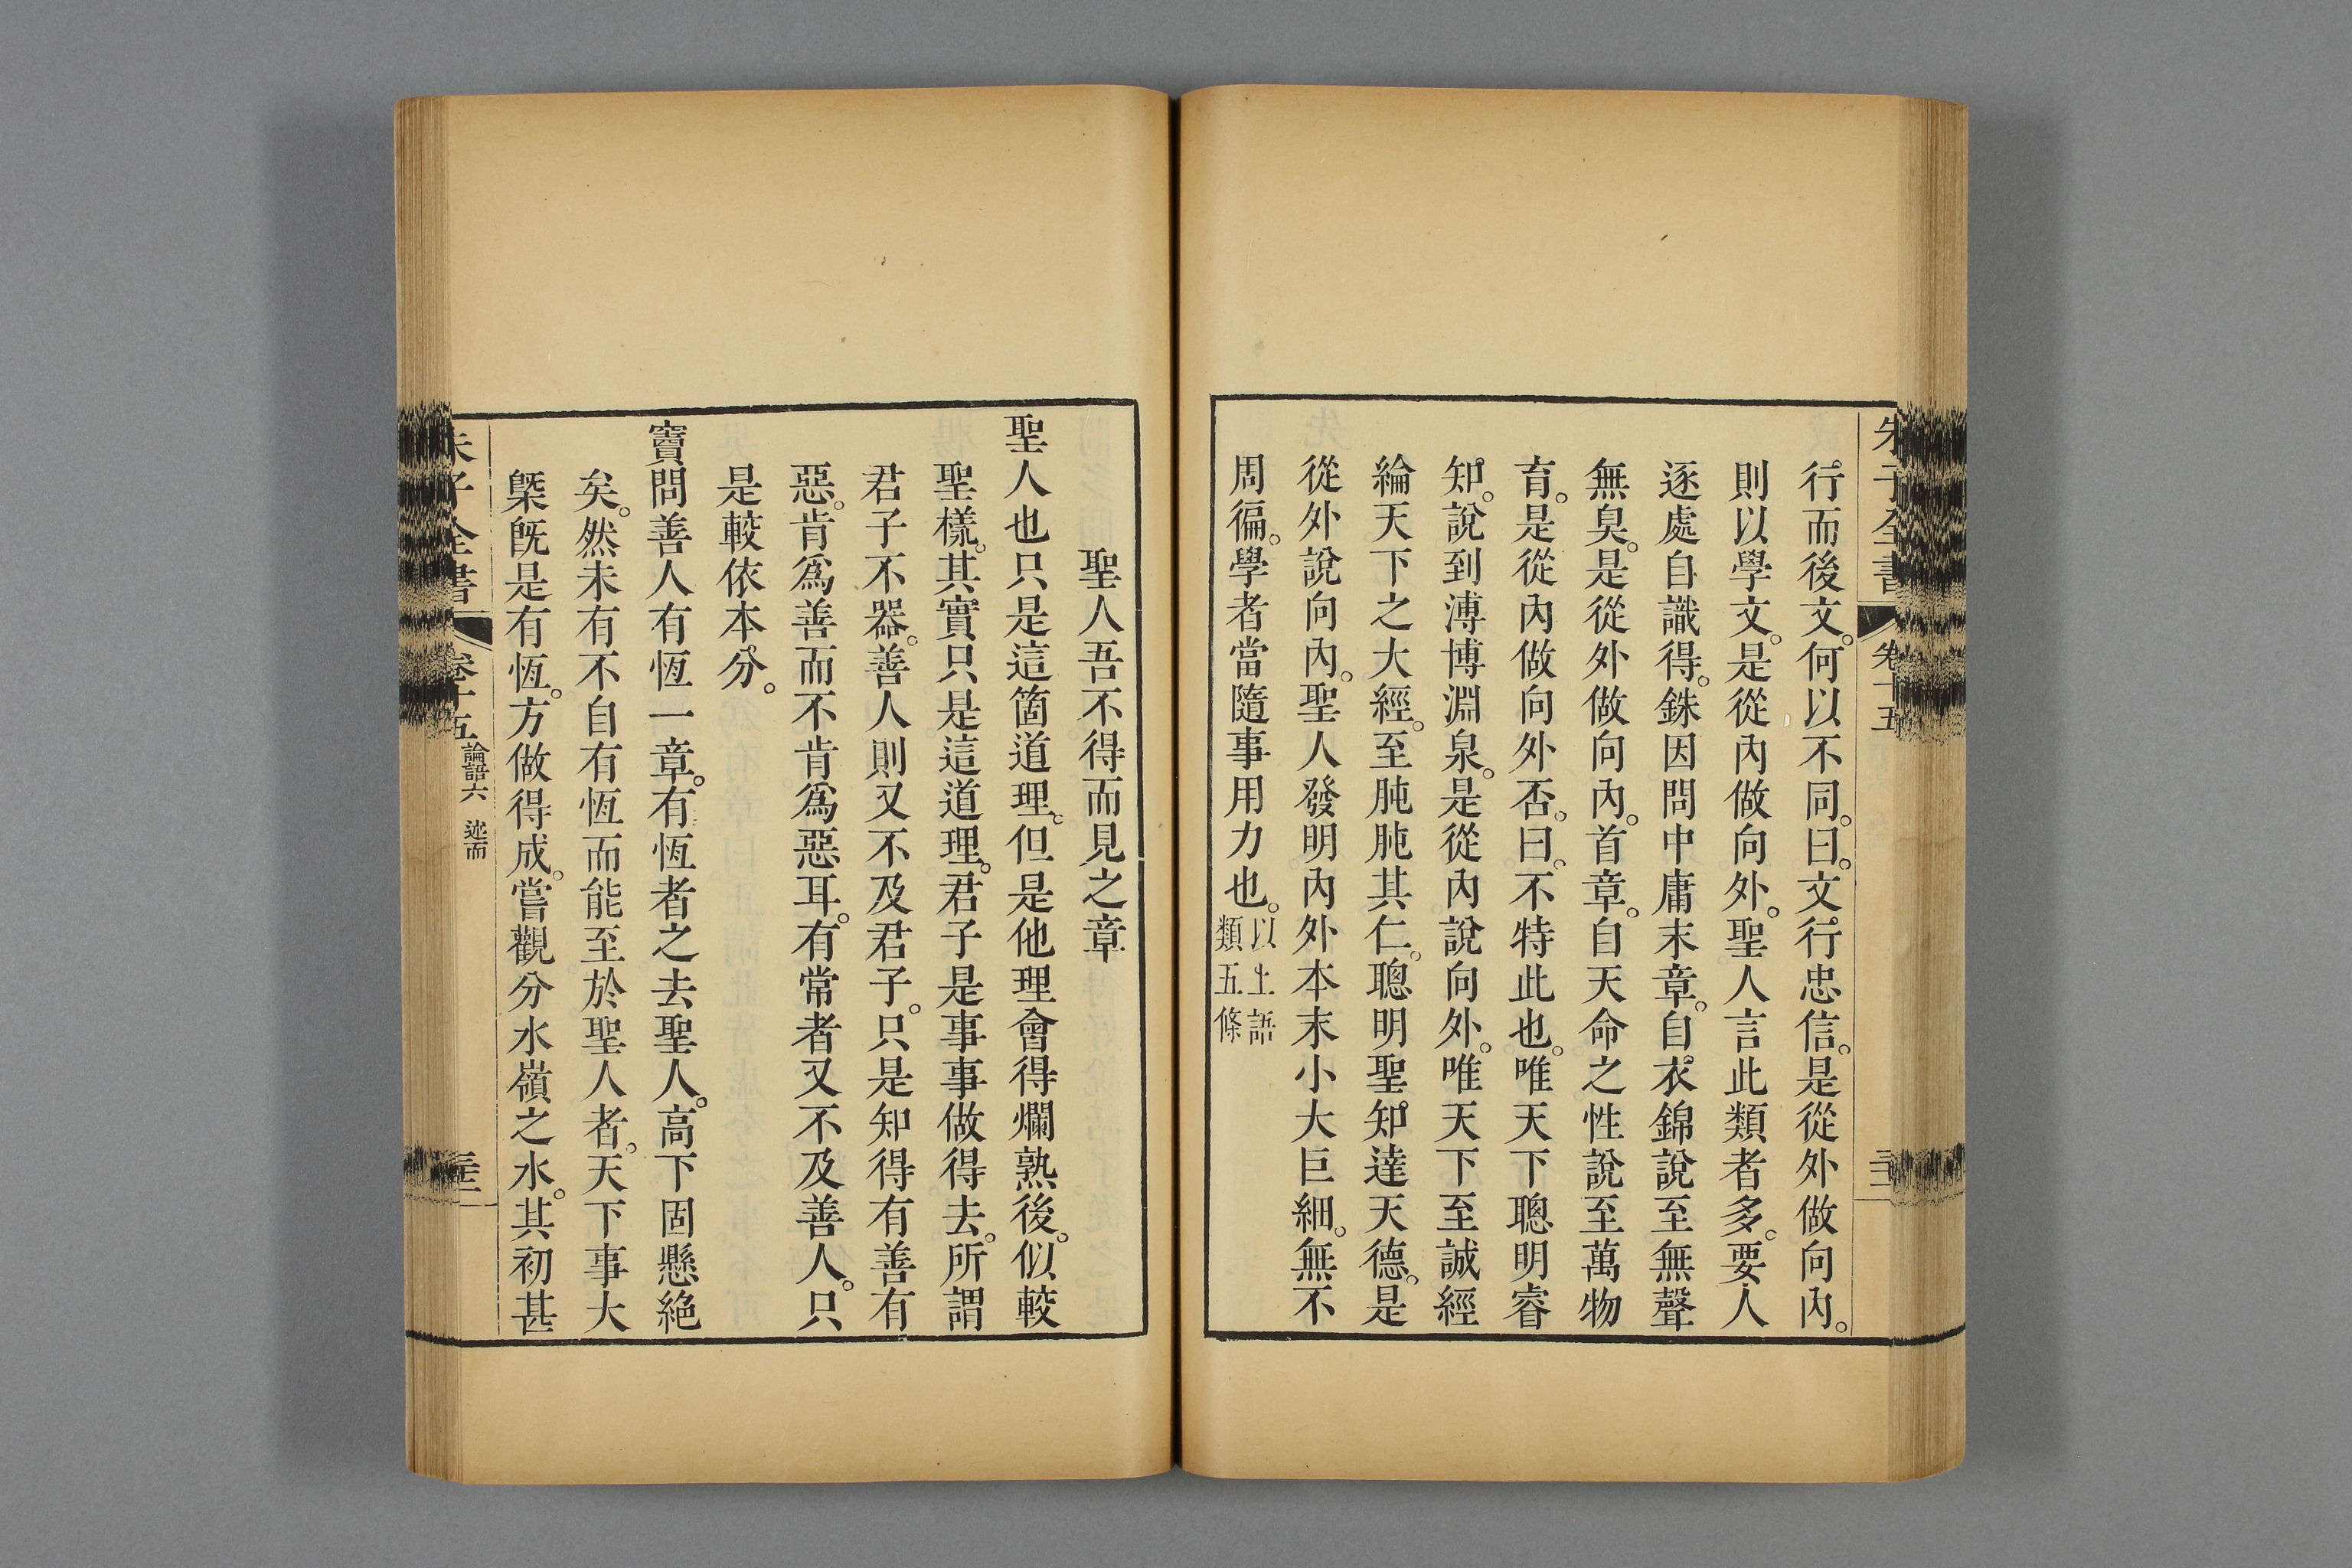 朱子全書 卷十五
行而後文。何以不同。曰。文行忠信。是從外做向內。
則以學文。是從內做向外。聖人言此類者多。要人
逐處自識得。銖因問中庸末章。自衣錦說至無聲
無臭。是從外做向內。首章。自天命之性說至萬物
育。是從內做向外否。曰。不特此也。唯天下聰明睿
知。說到溥博淵泉。是從內說向外。唯天下至誠經
綸天下之大經。至肫肫其仁。聰明聖知達天德。是
從外說向內。聖人發明內外本末小大巨細。無不
周徧。學者當隨事用力也。以上語
類五條
聖人吾不得而見之章
聖人也只是這箇道理。但是他理會得爛熟後。似較
聖樣。其實只是這道理。君子是事事做得去。所謂
君子不器。善人則又不及君子。只是知得有善有
惡。肯爲善而不肯爲惡耳。有常者又不及善人。只
是較依本分。
竇問善人有恆一章。有恆者之去聖人。高下固懸絶
矣。然未有不自有恆而能至於聖人者。天下事大
槩旣是有恆。方做得成。嘗觀分水嶺之水。其初甚
朱子全書 卷十五 論語六 述而